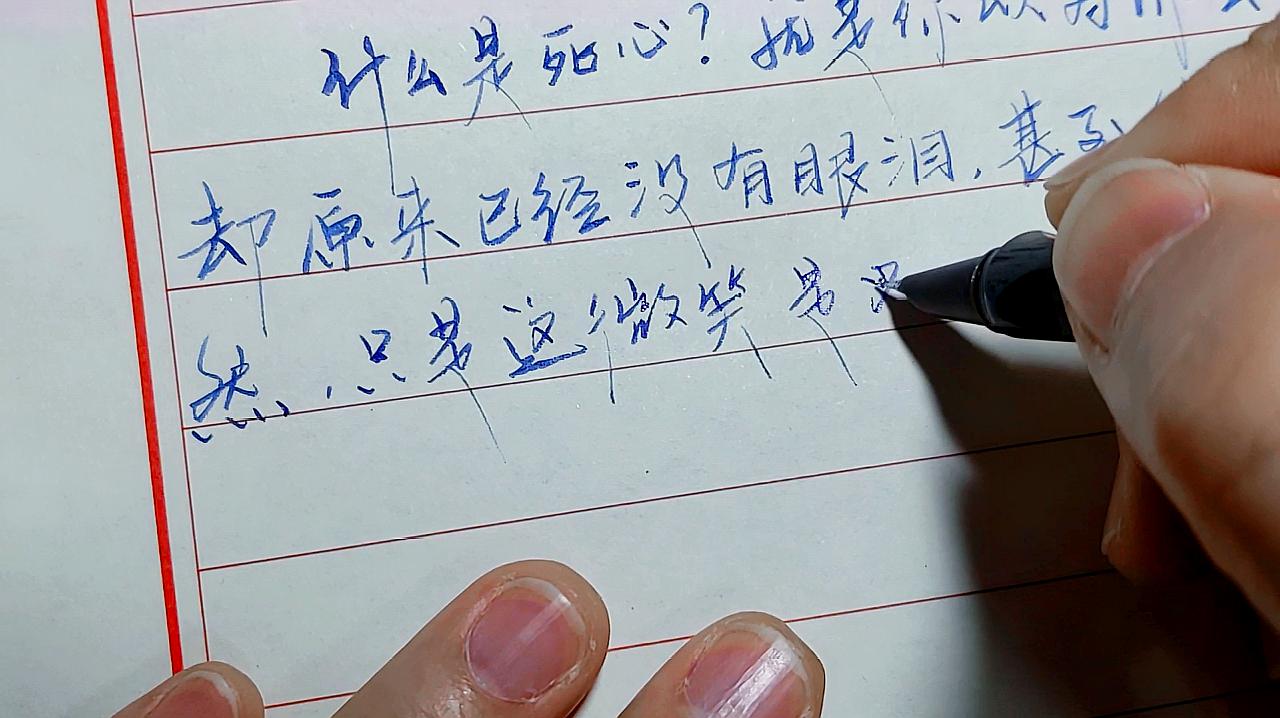 什么是死心？就是你以为什么
却原来已经没有眼泪，甚至
然，只是这微笑是